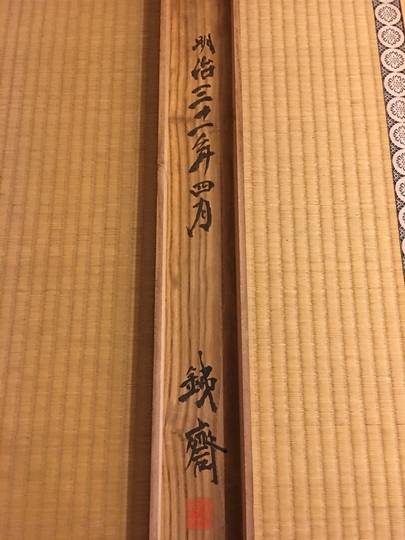 明治三十一年四月
銕齋